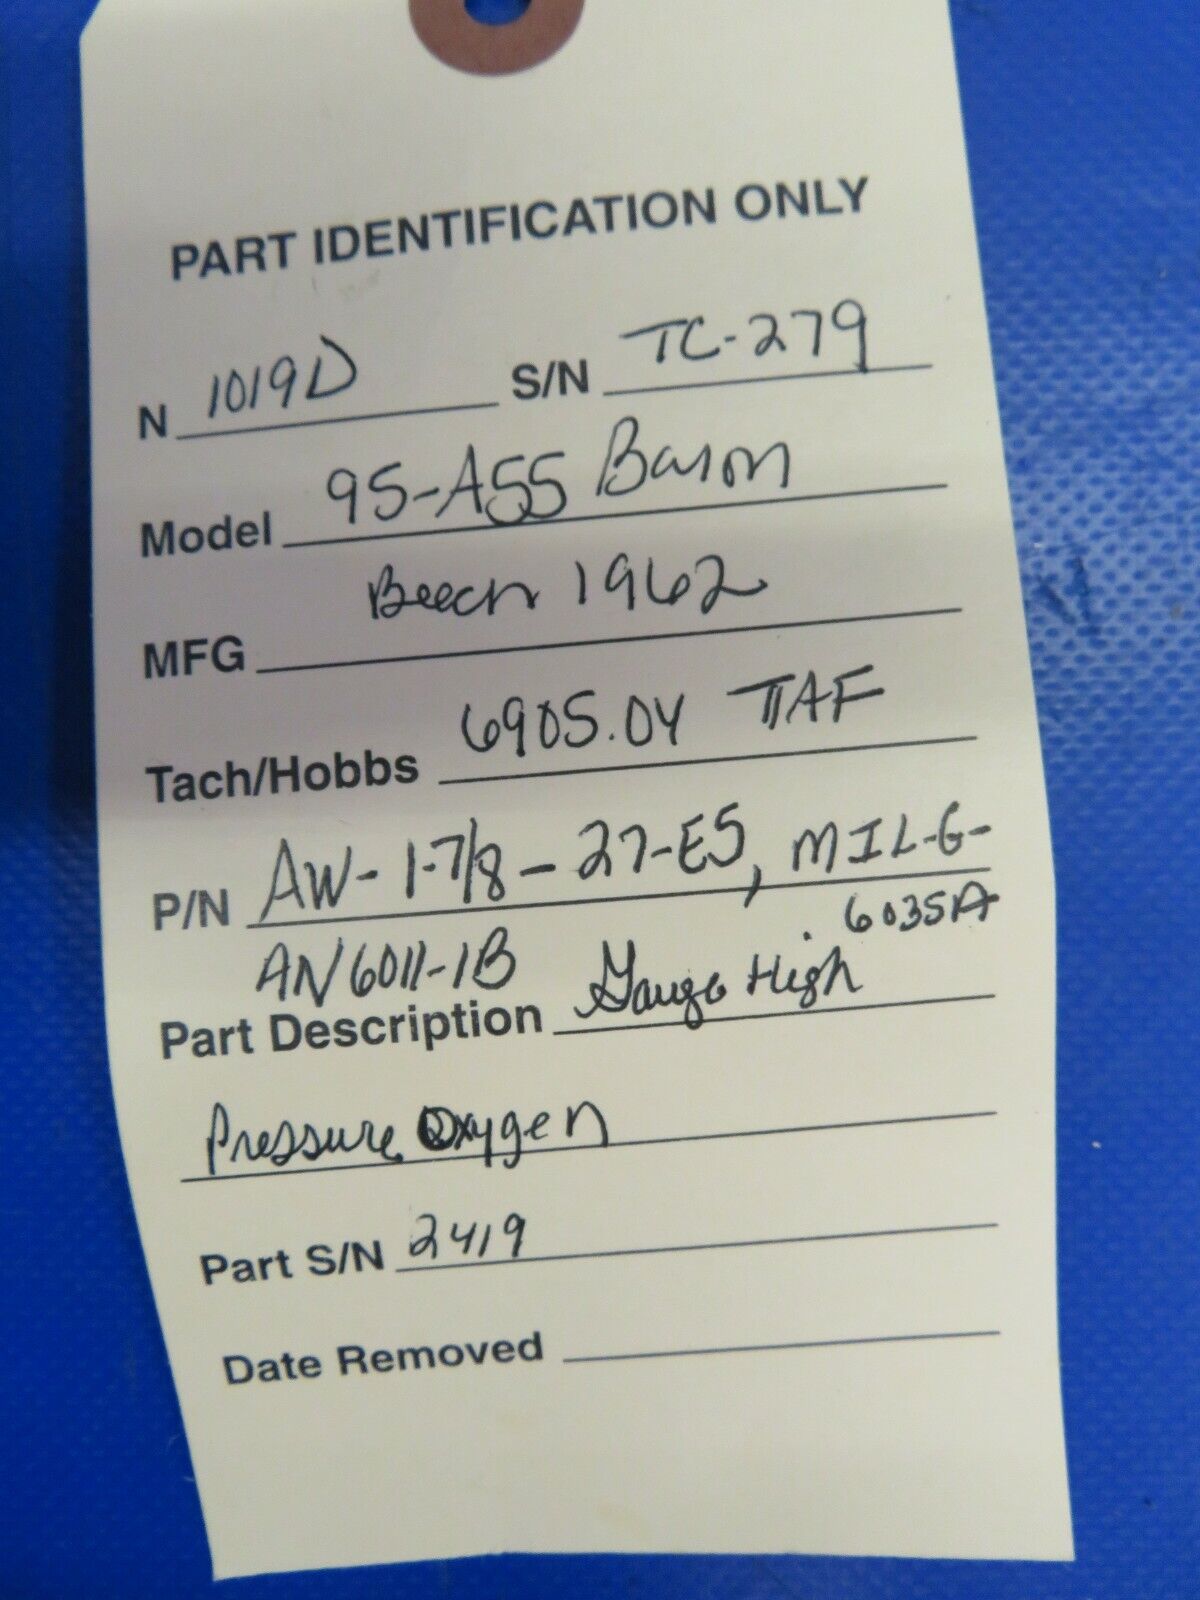 PART IDENTIFICATION ONLY
N 1019D S/N TC-279
Model 95-A55 Baron
MFG Beech 1962
Tach/Hobbs 6905.04 TTAF
P/N AW-1-7/8-27-E5, MIL-G-
6035A
AN6011-1B
Part Description Gauge High
Pressure Oxygen
Part S/N 2419
Date Removed